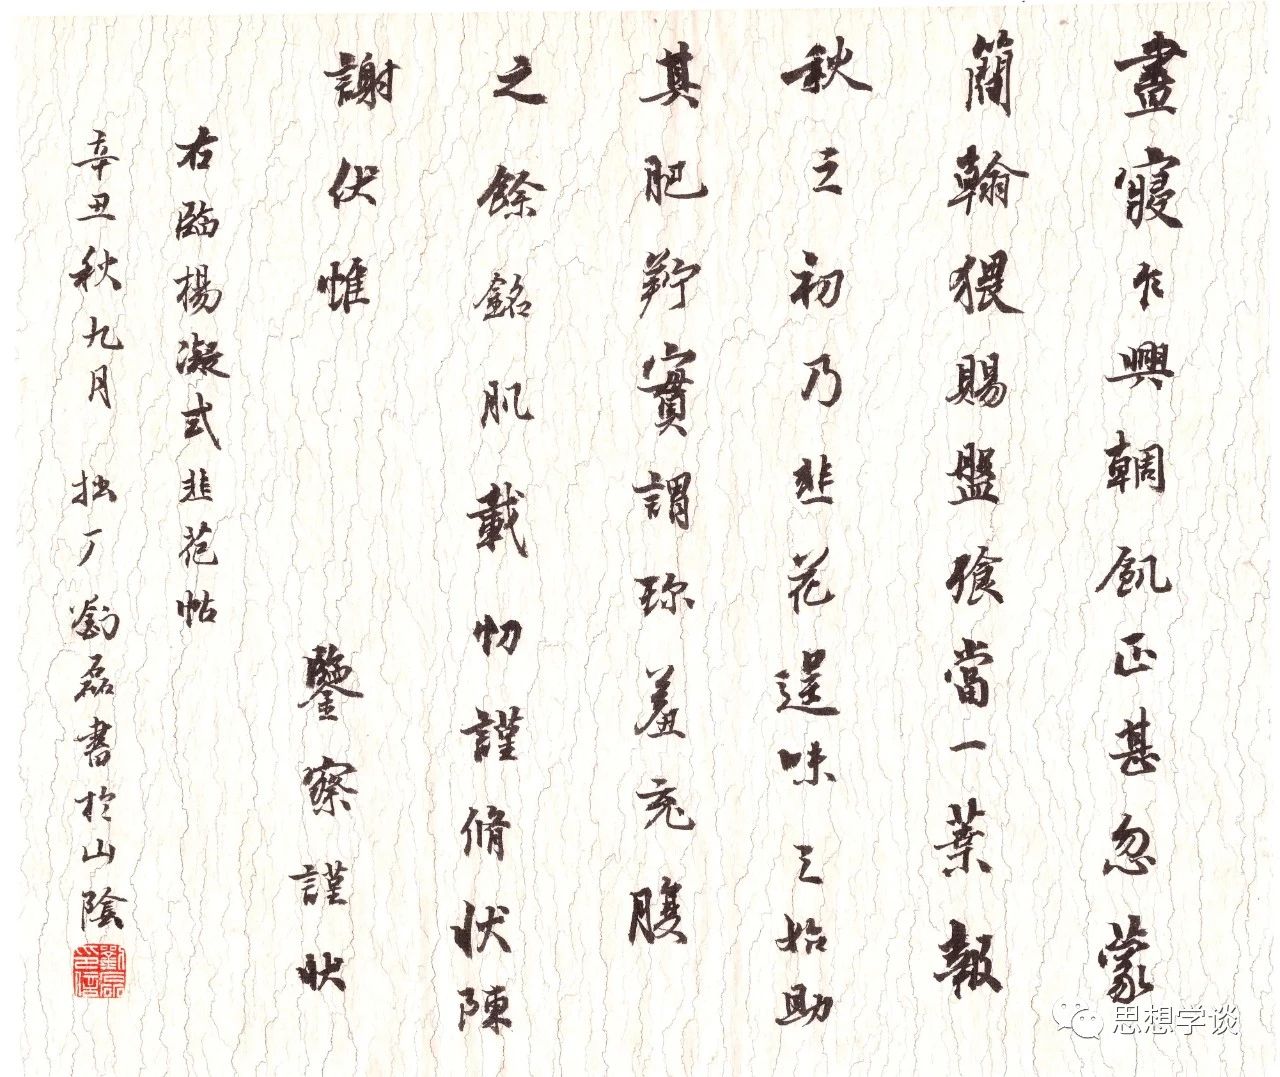 晝寢乍興輖飢正甚忽蒙
簡翰猥賜盤飱當一葉報
秋之初乃韭花逞味之始助
其肥羜實謂珍羞充腹
之餘銘肌載切謹脩狀陳
謝伏惟 鑒察謹狀
右臨楊凝式韭花帖
辛丑秋九月 拙厂劉磊書於山陰
劉磊印信
思想学谈